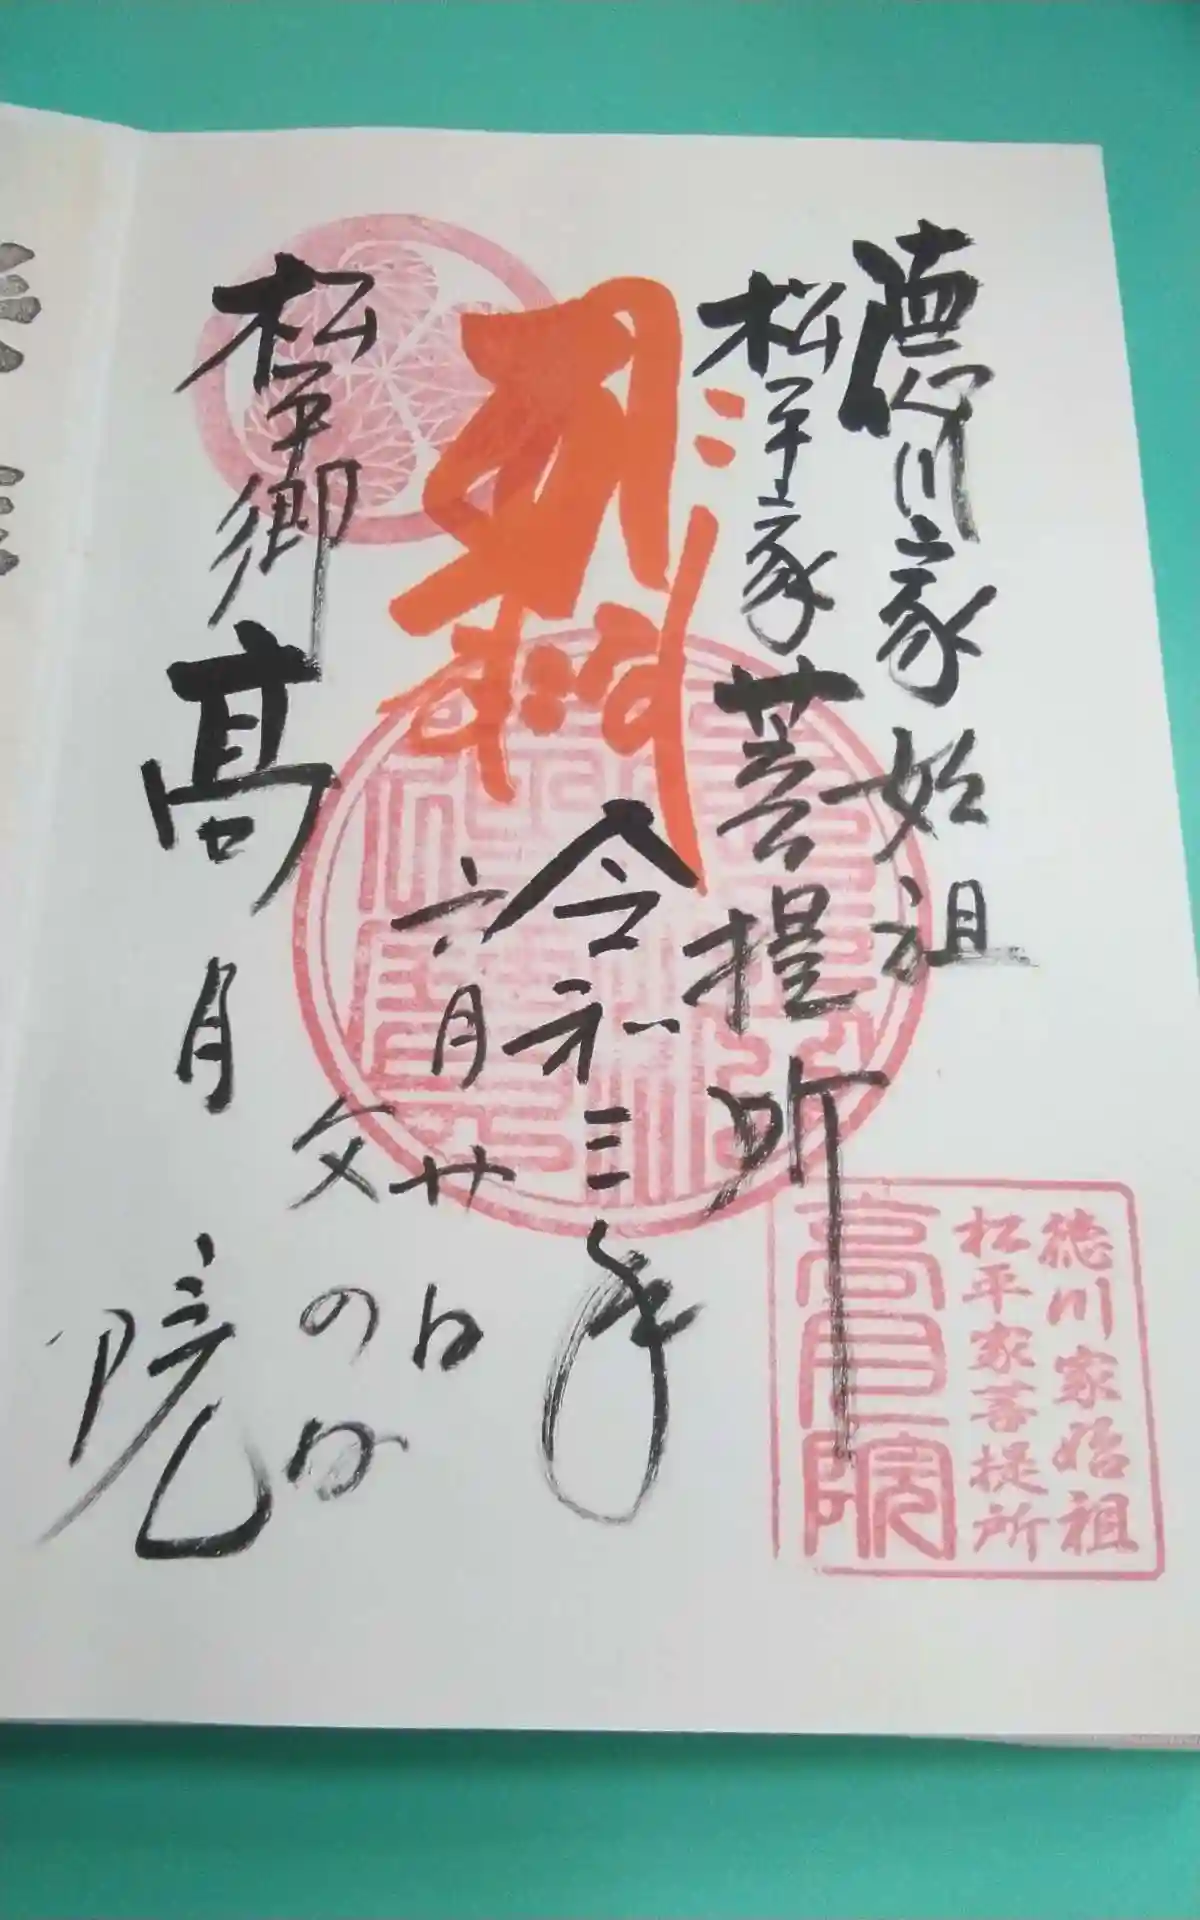 徳川家始祖
松平家菩提所
令和三年
六月廿日
父の日
松平郷高月院
徳川家始祖
松平家菩提所
高月院